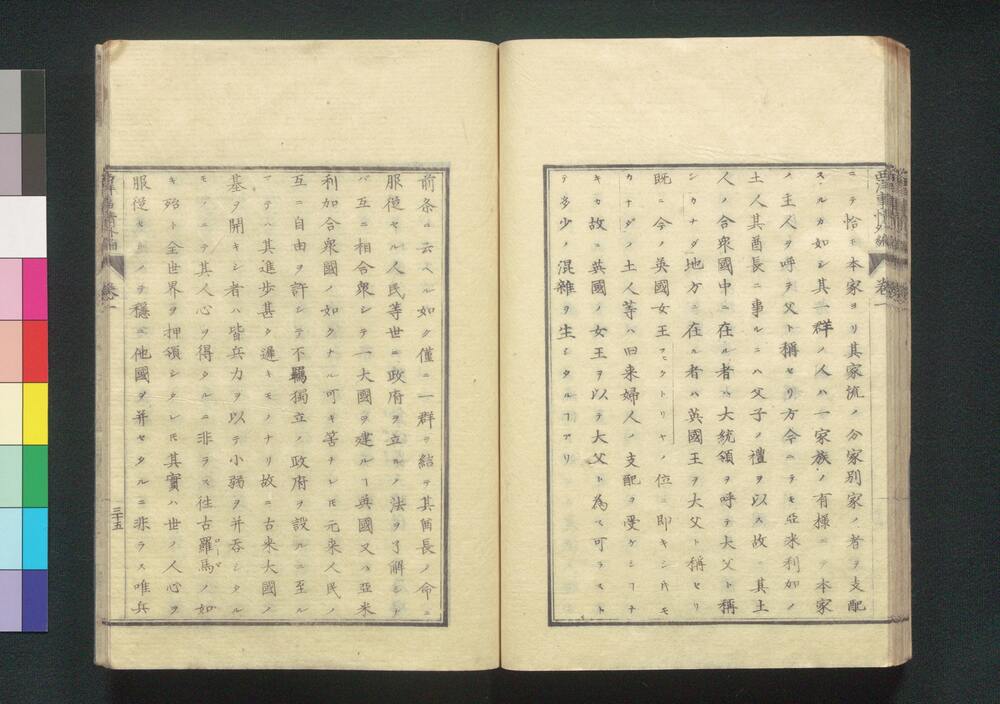 ニテ恰モ本家ヨリ其家流ノ分家別家ノ者ヲ支配
スルカ如シ其一群ノ人ハ一家族ノ有様ニテ本家
ノ主人ヲ呼テ父ト稱セリ方今ニテモ亞米利加ノ
土人其酋長ニ事ルニハ父子ノ禮ヲ以ス故ニ其土
人ノ合衆國中ニ在ル者ハ大統領ヲ呼テ大父ト稱
シカナダ地方ニ在ル者ハ英國王ヲ大父ト稱セリ
既ニ今ノ英國女王ヴヰクトリヤノ位ニ即キシ時モ
カナダノ土人等ハ旧来婦人ノ支配ヲ受ケシヿナ
キカ故ニ英國ノ女王ヲ以テ大父ト為ス可ラスト
テ多少ノ混雜ヲ生シタルヿアリ
西洋事情外編
卷一
前条ニ云ヘル如ク僅ニ一群ヲ結テ其酋長ノ命ニ
服從セル人民等世ニ政府ヲ立ルノ法ヲ了解シナ
バ互ニ相合衆シテ一大國ヲ建ルヿ英國又ハ亞米
利加合衆國ノ如クナル可キ筈ナレ𪜈元来人民ノ
互ニ自由ヲ許シテ不羈獨立ノ政府ヲ設ルニ至ル
マテハ其進歩甚タ遲キモノナリ故ニ古来大國ノ
基ヲ開キシ者ハ皆兵力ヲ以テ小弱ヲ并呑シタル
モノニテ其人心ヲ得タルニ非ラス徃古羅馬ノ如
キ殆ト全世界ヲ押領シタレ𪜈其實ハ世ノ人心ヲ
服從セシメテ穏ニ他國ヲ并セタルニ非ラス唯兵
卷一
三十五